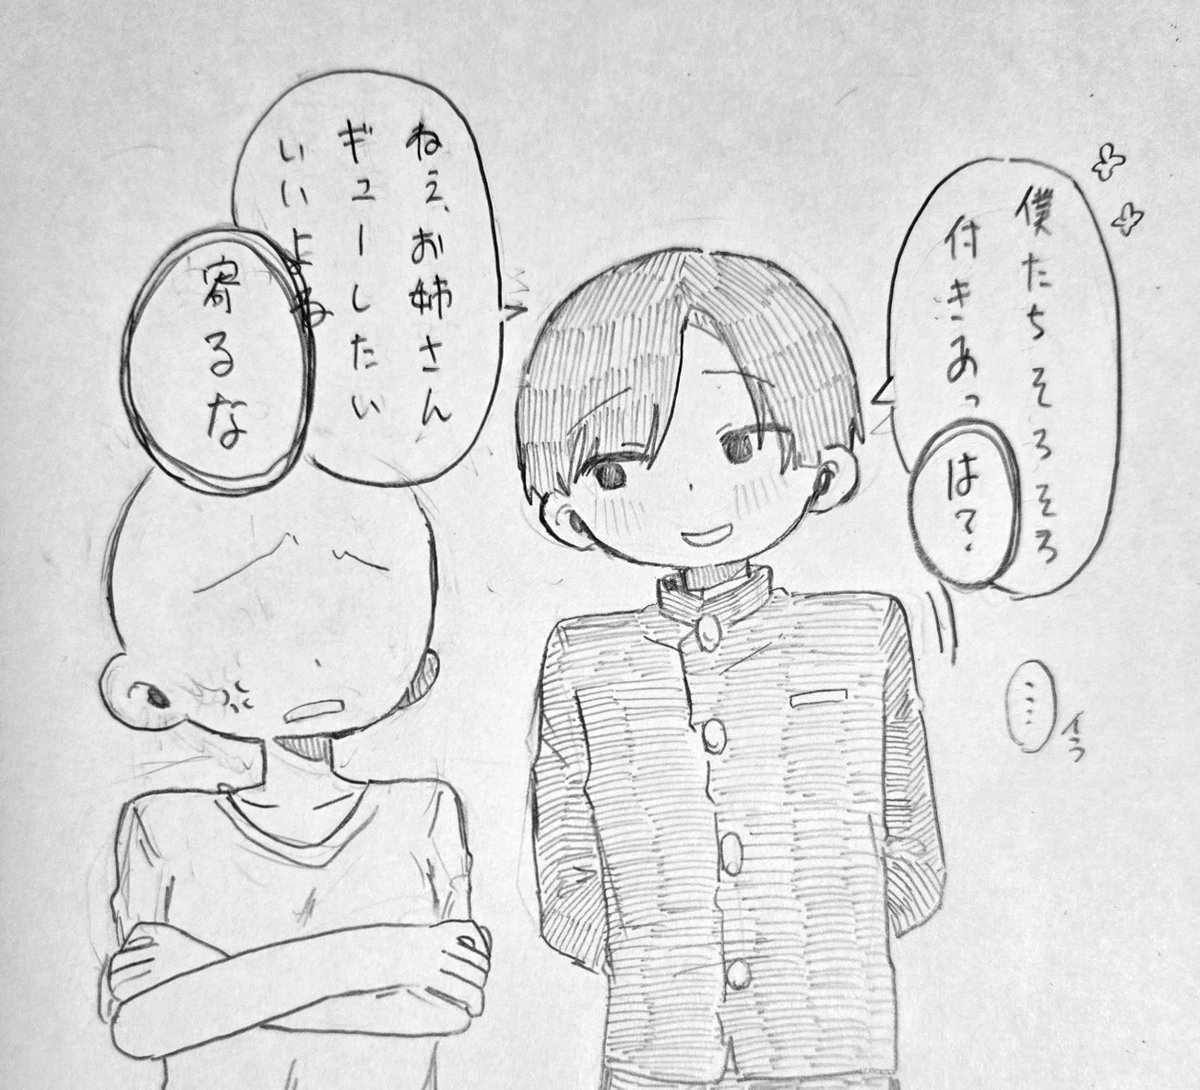 僕たちそろそろ
付きあっ
は?
……
イラ
ねえ、お姉さん
ギューしたい
いいよね
寄るな